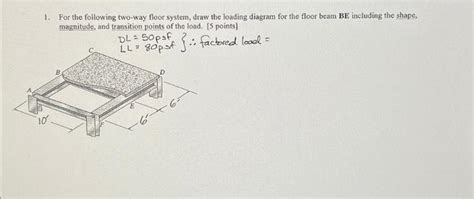 1. For the following two-way floor system, draw the loading diagram for the floor beam BE including the shape,
magnitude, and transition points of the load. [5 points]
DL = 50psf
LL = 80psf } ∴ factored load =
C
B
D
A
E
10'
6'
6'